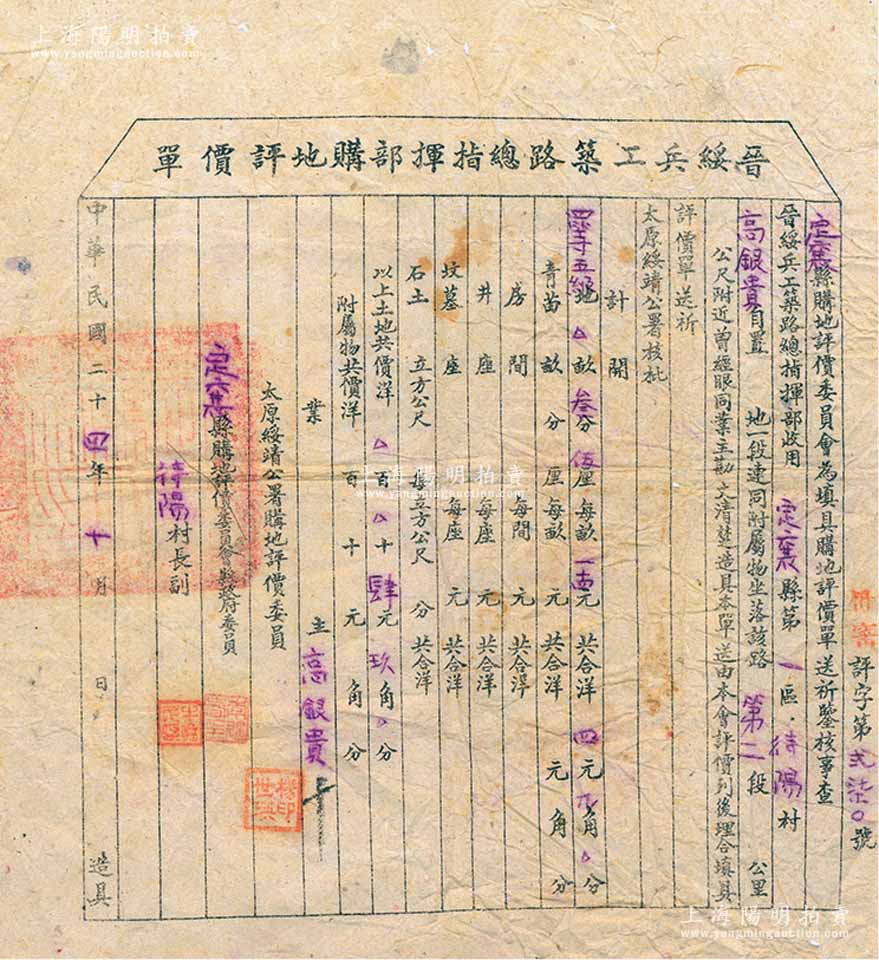 上海陽明拍賣
www.yangmingauction.com
晉綏兵工築路總指揮部購地評價單
評字第弍柒〇號
定襄縣購地評價委員會為填具購地評價單送祈鑒核事查
晉綏兵工築路總指揮部收用 定襄縣第一區待陽村
高銀貴自置 地一段連同附屬物坐落該路 第二段 公里
公尺附近曾經眼同業主勘丈清楚造具本單送由本會評價列後理合填具
評價單送祈
太原綏靖公署核批
計開
四等五級地 △畝叁分伍厘每畝 元共合洋 四元九角△分
青苗 畝 分 厘每畝 元共合洋 元 角 分
房 間 每間 元共合洋
井 座 每座 元共合洋
墳墓 座 每座 元共合洋
石土 立方公尺 每立方公尺 分 共合洋
以上土地共價洋 △百△十肆元玖角△分
附屬物共價洋 百 十 元 角 分
業主 高銀貴 十
太原綏靖公署購地評價委員
定襄縣購地評價委員會縣政府委員
待陽村長副
中華民國二十四年十月 日 造具
上海陽明拍賣
www.yangmingauction.com
上海陽明拍賣
www.yangmingauction.com